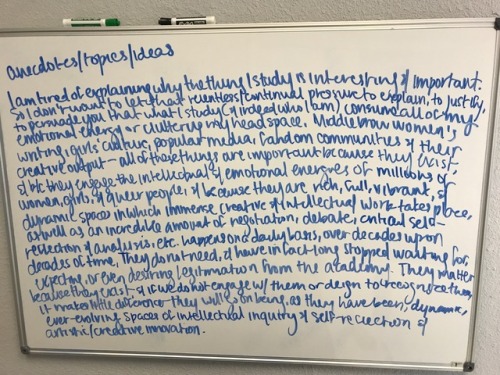 anecdotes/topics/ideas
I am tired of explaining why the thing I study is interesting & important.
so I don't want to let that relentless/continual pressure to explain, to justify,
to persuade you that what I study (& indeed who I am) consume all of my
emotional energy or cluttering my head space. Middlebrow women's
writing, girls' culture, popular media, fandom communities & their
creative output – all of these things are important because they exist,
& b/c they engage the intellectual & emotional energies of millions of
women, girls, & queer people, & because they are rich, full, vibrant, &
dynamic spaces in which immense creative & intellectual work takes place,
as well as an incredible amount of negotiation, debate, critical self-
reflection & analysis, etc. happens on a daily basis, over decades upon
decades of time. They do not need, & have in fact long stopped waiting for,
expecting, or even desiring legitimation from the academy. They matter
because they exist – & if we do not engage w/ them or deign to recognize them,
it makes little difference they will go on being, as they have been, dynamic,
ever-evolving spaces of intellectual inquiry & self-reflection &
artistic/creative innovation.